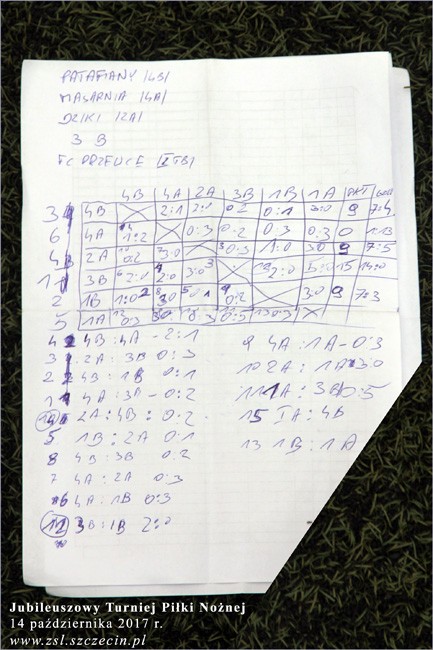 PATAFIANY /4B/
MASARNIA /4A/
DZIKI /2A/
3 B
4B 4A 2A 3B 1B 1A PKT
3 4B 2:1 2:0 0:2 0:1 3:0 9 7:4
6 4A 1:2 0:3 0:2 0:3 0:3 0
4 2A 0:2 3:0 0:3 1:0 3:0 9 7:5
1 3B 2:0 2:0 3:0 2:0 5:0 15 14:0
2 1B 1:0 3:0 0:1 0:2 3:0 9 7:3
5 1A 0:3 0:3 0:5 0:3
4B : 4A - 2:1
2A : 3B 0:3
4B : 1B 0:1
4A : 3A - 0:2
2A : 4B : 0:2
5 1B : 2A 0:1
8 4B : 3B 0:2
7 4A : 2A 0:3
6 4A : 1B 0:3
12 3B : 1B 2:0
9 4A : 1A - 0:3
10 2A : 1A 3:0
11 1A : 3B 0:5
15 1A : 4B
13 1B : 1A
Jubileuszowy Turniej Piłki Nożnej
14 października 2017 r.
www.zsl.szczecin.pl